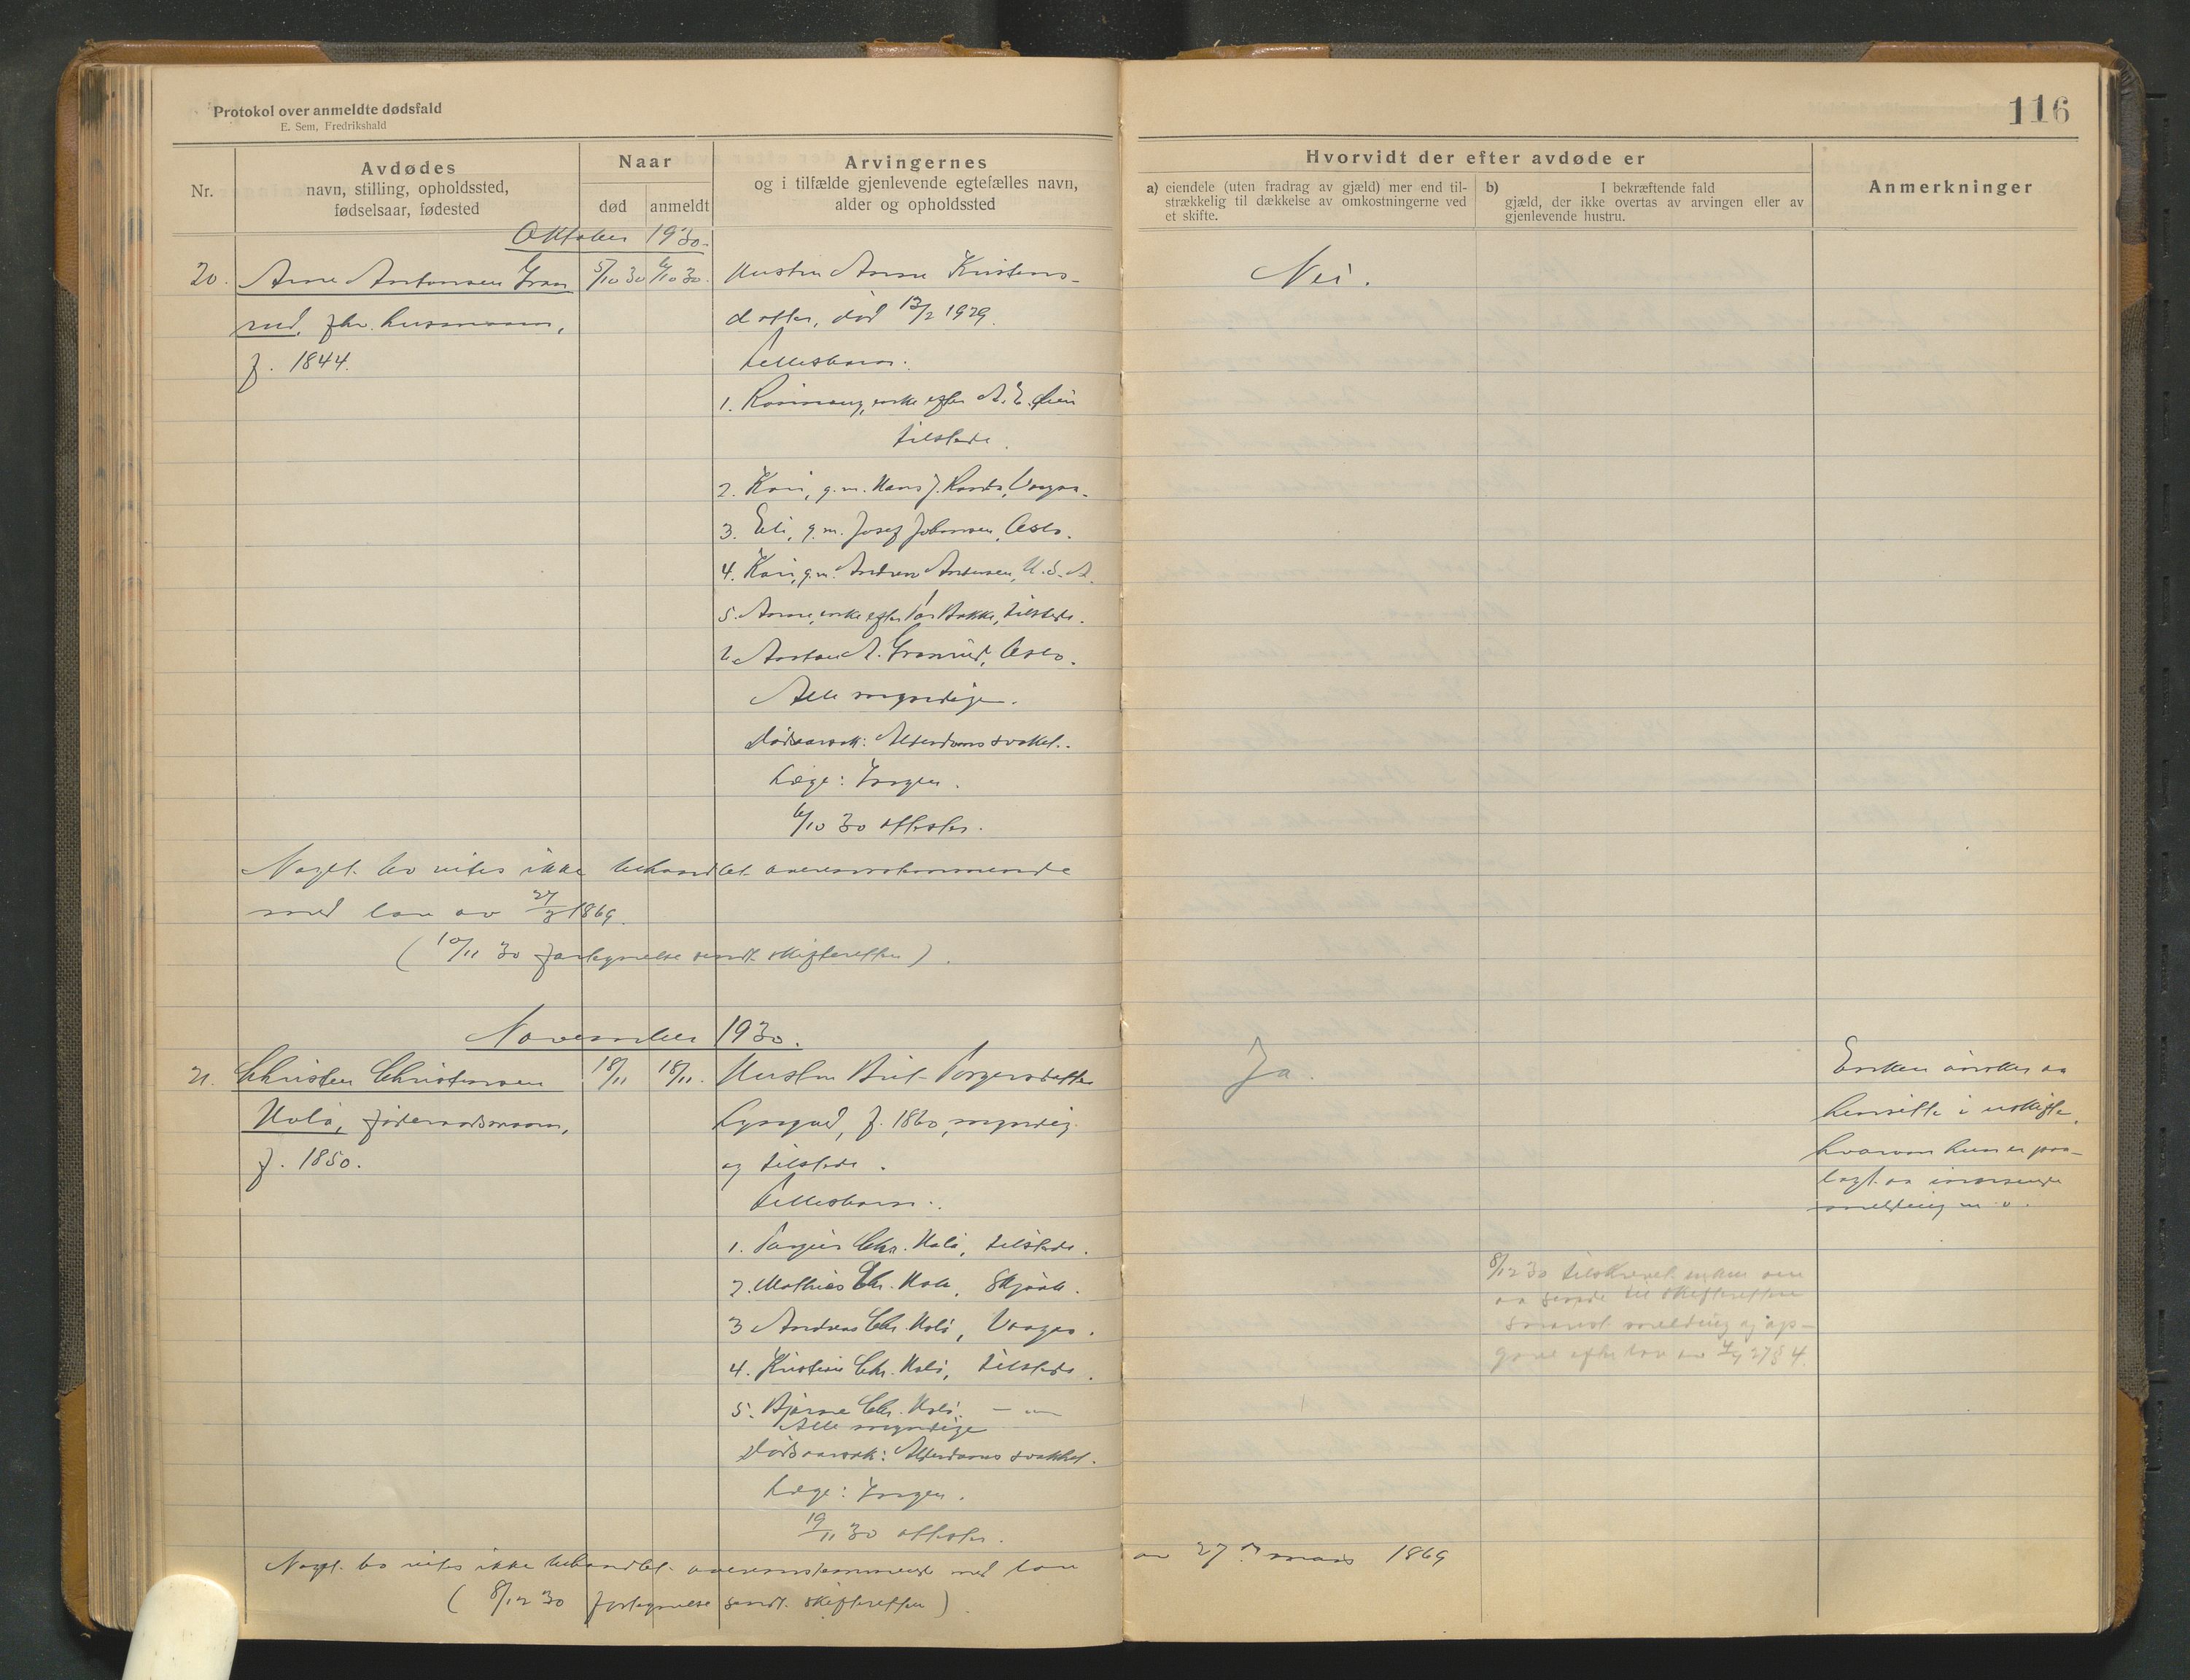 Protokol over anmeldte dødsfald
E. Sem, Fredrikshald
116
Nr.
Avdødes
navn, stilling, opholdssted,
fødselsaar, fødested
Naar
død
anmeldt
Arvingernes
og i tilfælde gjenlevende egtefælles navn,
alder og opholdssted
Hvorvidt der efter avdøde er
a) eiendele (uten fradrag av gjæld) mer end til-
strækkelig til dækkelse av omkostningerne ved
et skifte.
b) I bekræftende fald
gjæld, der ikke overtas av arvingen eller av
gjenlevende hustru.
Anmerkninger
Oktober 1930.
20. Arne Antonsen Gran
rud, fhv. husmann,
f. 1844.
5/10 30 6/10 30.
Hustru Anne Kristens-
datter, død 12/2 1929.
Fellesbarn:
1. enke efter A. E.
tilstede.
2. Kari, g.m. Hans J. Vaagaa.
3. Eli, g.m. Josef Johansen, Oslo.
4. Kari, g.m. Andrew Andersen, U.S.A.
5. Anne, enke efter Bakke, tilstede.
6. A. Granrud, Oslo.
Alle myndige.
Dødsaarsak: Alderdomssvakhet.
Læge:
6/10 30 attester.
Nei.
Nogt. bo vites ikke behandlet overensstemmende
med lov av 27/3 1869.
(10/11 30 fortegnelse sendt skifteretten).
November 1930.
21. Christen Christensen
Holø, føderaadsmann,
f. 1850.
18/11 18/11.
Hustru Brit Torgersdatter
f. 1860, myndig
og tilstede.
Fellesbarn:
1. Chr. Holø, tilstede.
2. Mathias Chr. Skjaak.
3 Andreas Chr. Holø, Vaagaa.
4. Kristian Chr. Holø, tilstede.
5. Bjarne Chr. Holø. — " —
Alle myndige
Dødsaarsak: Alderdomssvakhet.
Læge:
19/11 30 attester.
Ja.
Enken ønsker aa
hensitte i uskifte,
hvorom hun er paa-
lagt aa innsende
melding m.v.
8/12 30 tilskrevet enken om
aa sende til skifteretten
snarest melding og op-
gave efter lov av 27 § 4.
Nogt. bo vites ikke behandlet overensstemmende med lov av 27. mars 1869
(8/12 30 fortegnelse sendt skifteretten).